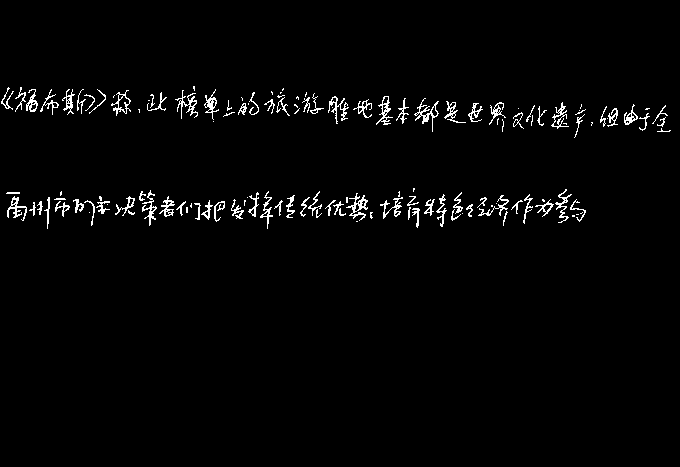 《福布斯》称,此榜单上的旅游胜地基本都是世界文化遗产,但由于全
禹州市的主决策者们把发挥传统优势、培育特色经济作为参与